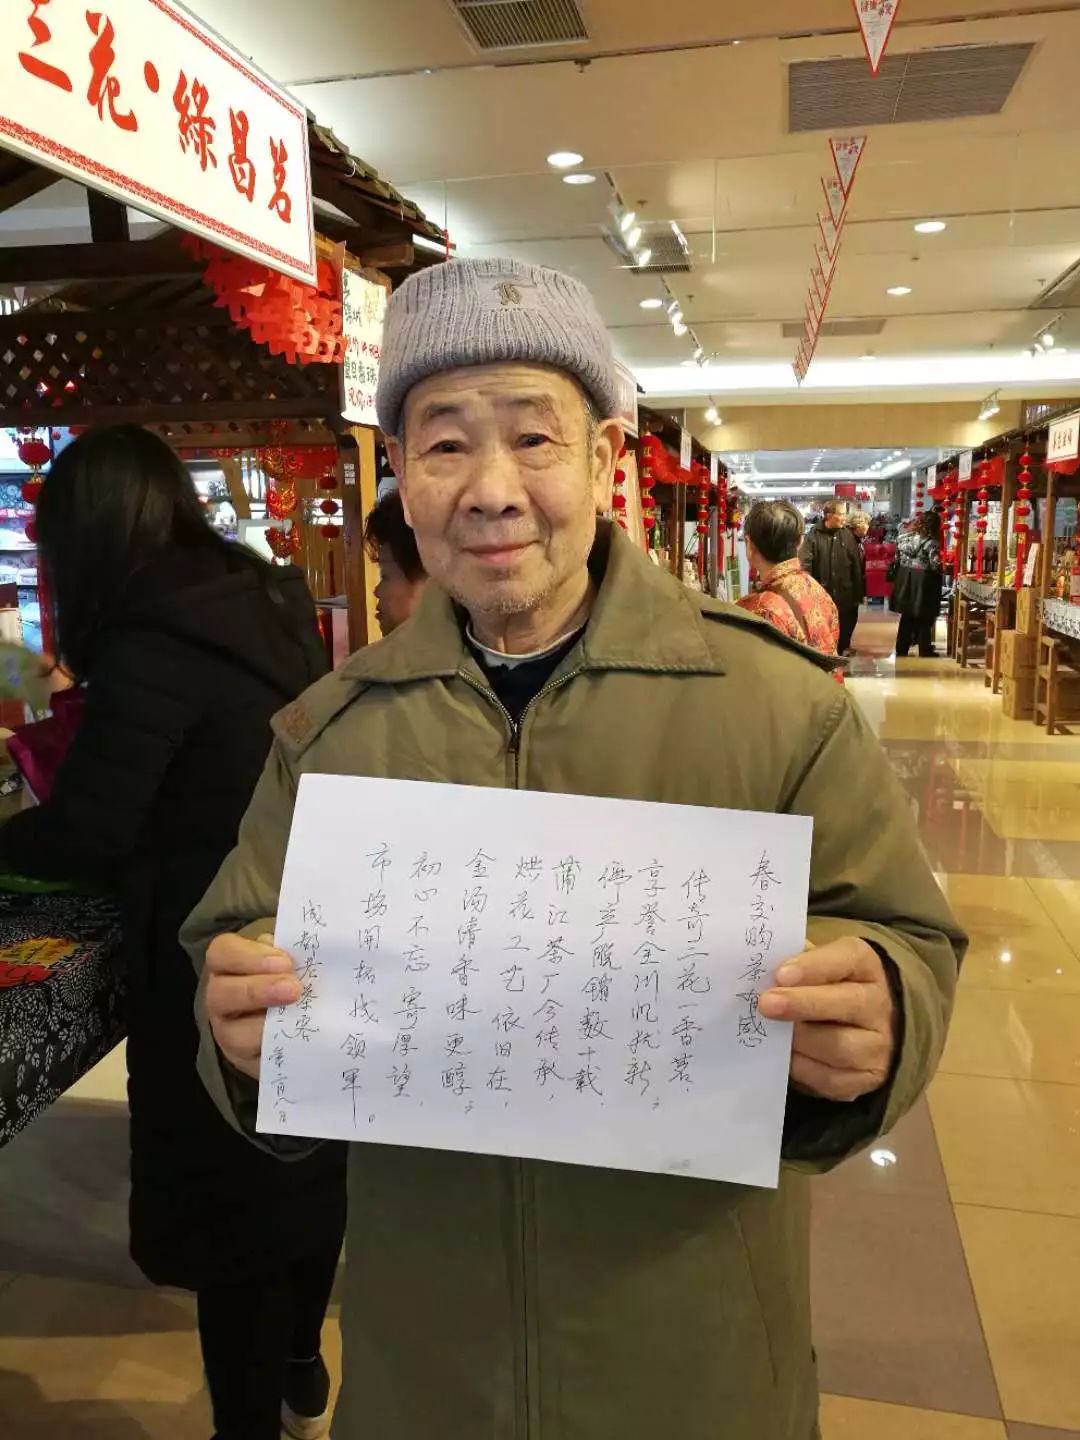 三花·綠昌茗
春交购茶有感
传奇三花一香茗，
享誉全川
停产脱销数十载，
蒲江茶厂今传承，
烘花工艺依旧在，
金汤清香味更醇；
初心不忘寄厚望，
市场开拓成领军。
成都老茶客
二〇一八年二月八日